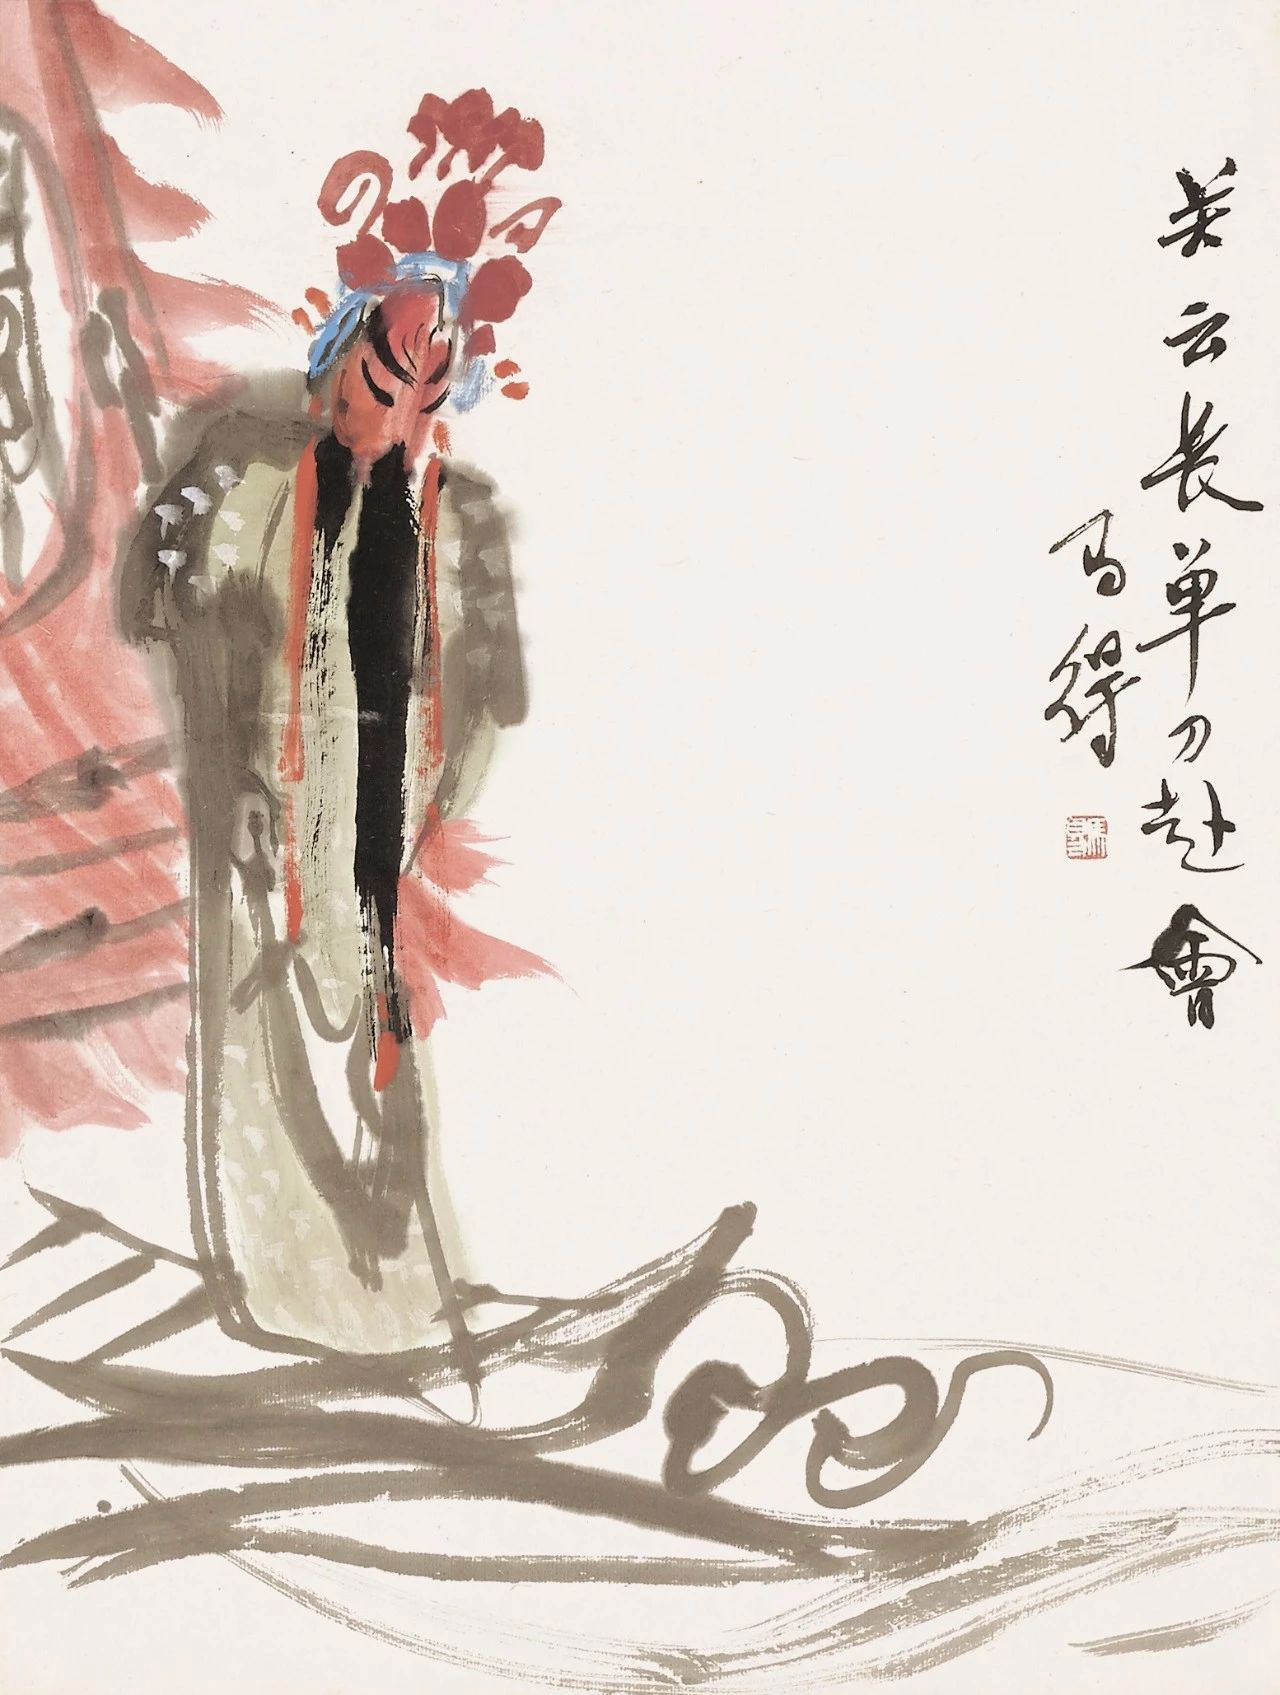 关云长单刀赴會
马得